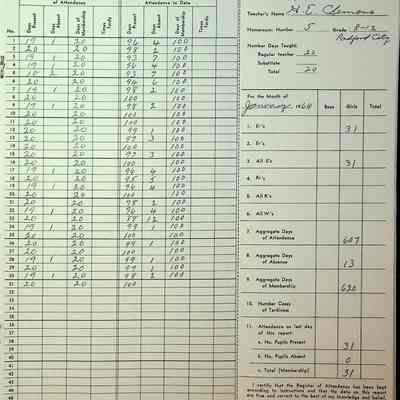 of Attendance Attendance to Date
No. Days Present Days Absent Days of Membership Times Tardy Days Present Days Absent Days of Membership Times Tardy
1 19 1 20 96 4 100
2 20 20 98 2 100
3 19 1 20 93 7 100
4 19 1 20 96 4 100
5 18 2 20 93 7 100
6 20 20 94 6 100
7 19 1 20 98 2 100
8 20 20 100 100
9 19 1 20 98 2 100
10 20 20 100 100
11 20 20 100 100
12 20 20 99 1 100
13 20 20 97 3 100
14 20 20 100 100
15 20 20 97 3 100
16 20 20 100 100
17 19 1 20 96 4 100
18 20 20 95 5 100
19 19 1 20 96 4 100
20 20 20 100 100
21 20 20 98 2 100
22 19 1 20 96 4 100
23 20 20 88 12 100
24 19 1 20 99 1 100
25 20 20 100 100
26 20 20 99 1 100
27 20 20 100 100
28 19 1 20 99 1 100
29 20 20 99 1 100
30 19 1 20 98 2 100
31 20 20 100 100
32
33
34
35
36
37
38
39
40
41
42
43
44
45
Teacher's Name H. E. Clemons
Homeroom: Number 5 Grade 8-12
Radford City
Number Days Taught:
Regular teacher 20
Substitute
Total 20
For the Month of
January, 1964 Boys Girls Total
1. E1's 31
2. E2's
3. All E's 31
4. R1's
5. All R's
6. All W's
7. Aggregate Days of Attendance 607
8. Aggregate Days of Absence 13
9. Aggregate Days of Membership 620
10. Number Cases of Tardiness
11. Attendance on last day of this report:
a. No. Pupils Present 31
b. No. Pupils Absent 0
c. Total (Membership) 31
I certify that the Register of Attendance has been kept
according to instructions and that the data on this report
are true and correct to the best of my knowledge and belief.